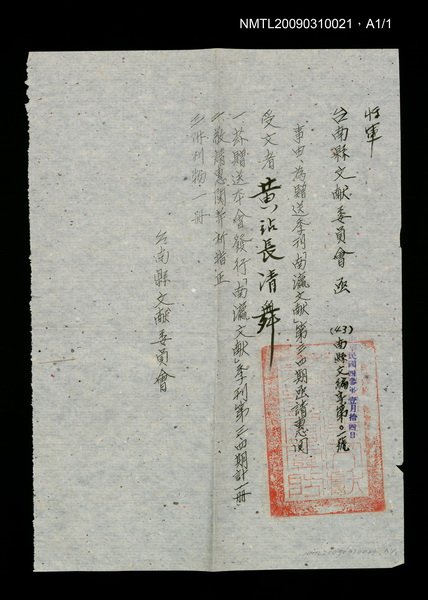 NMTL20090310021，A1/1
将軍
台南縣文献委員會函
(43)南縣文编字第〇一號
中華民國四參年壹月拾四日
事由：為贈送季刊「南瀛文献」第三四期函請惠閱
受文者 黄站長清舞
一、茲贈送本會發行「南瀛文献」季刊第三四期計一冊
二、敬請惠閱并祈指正
三、附刊物一冊
台南縣文献委員會
NMTL20090310021 A1/1